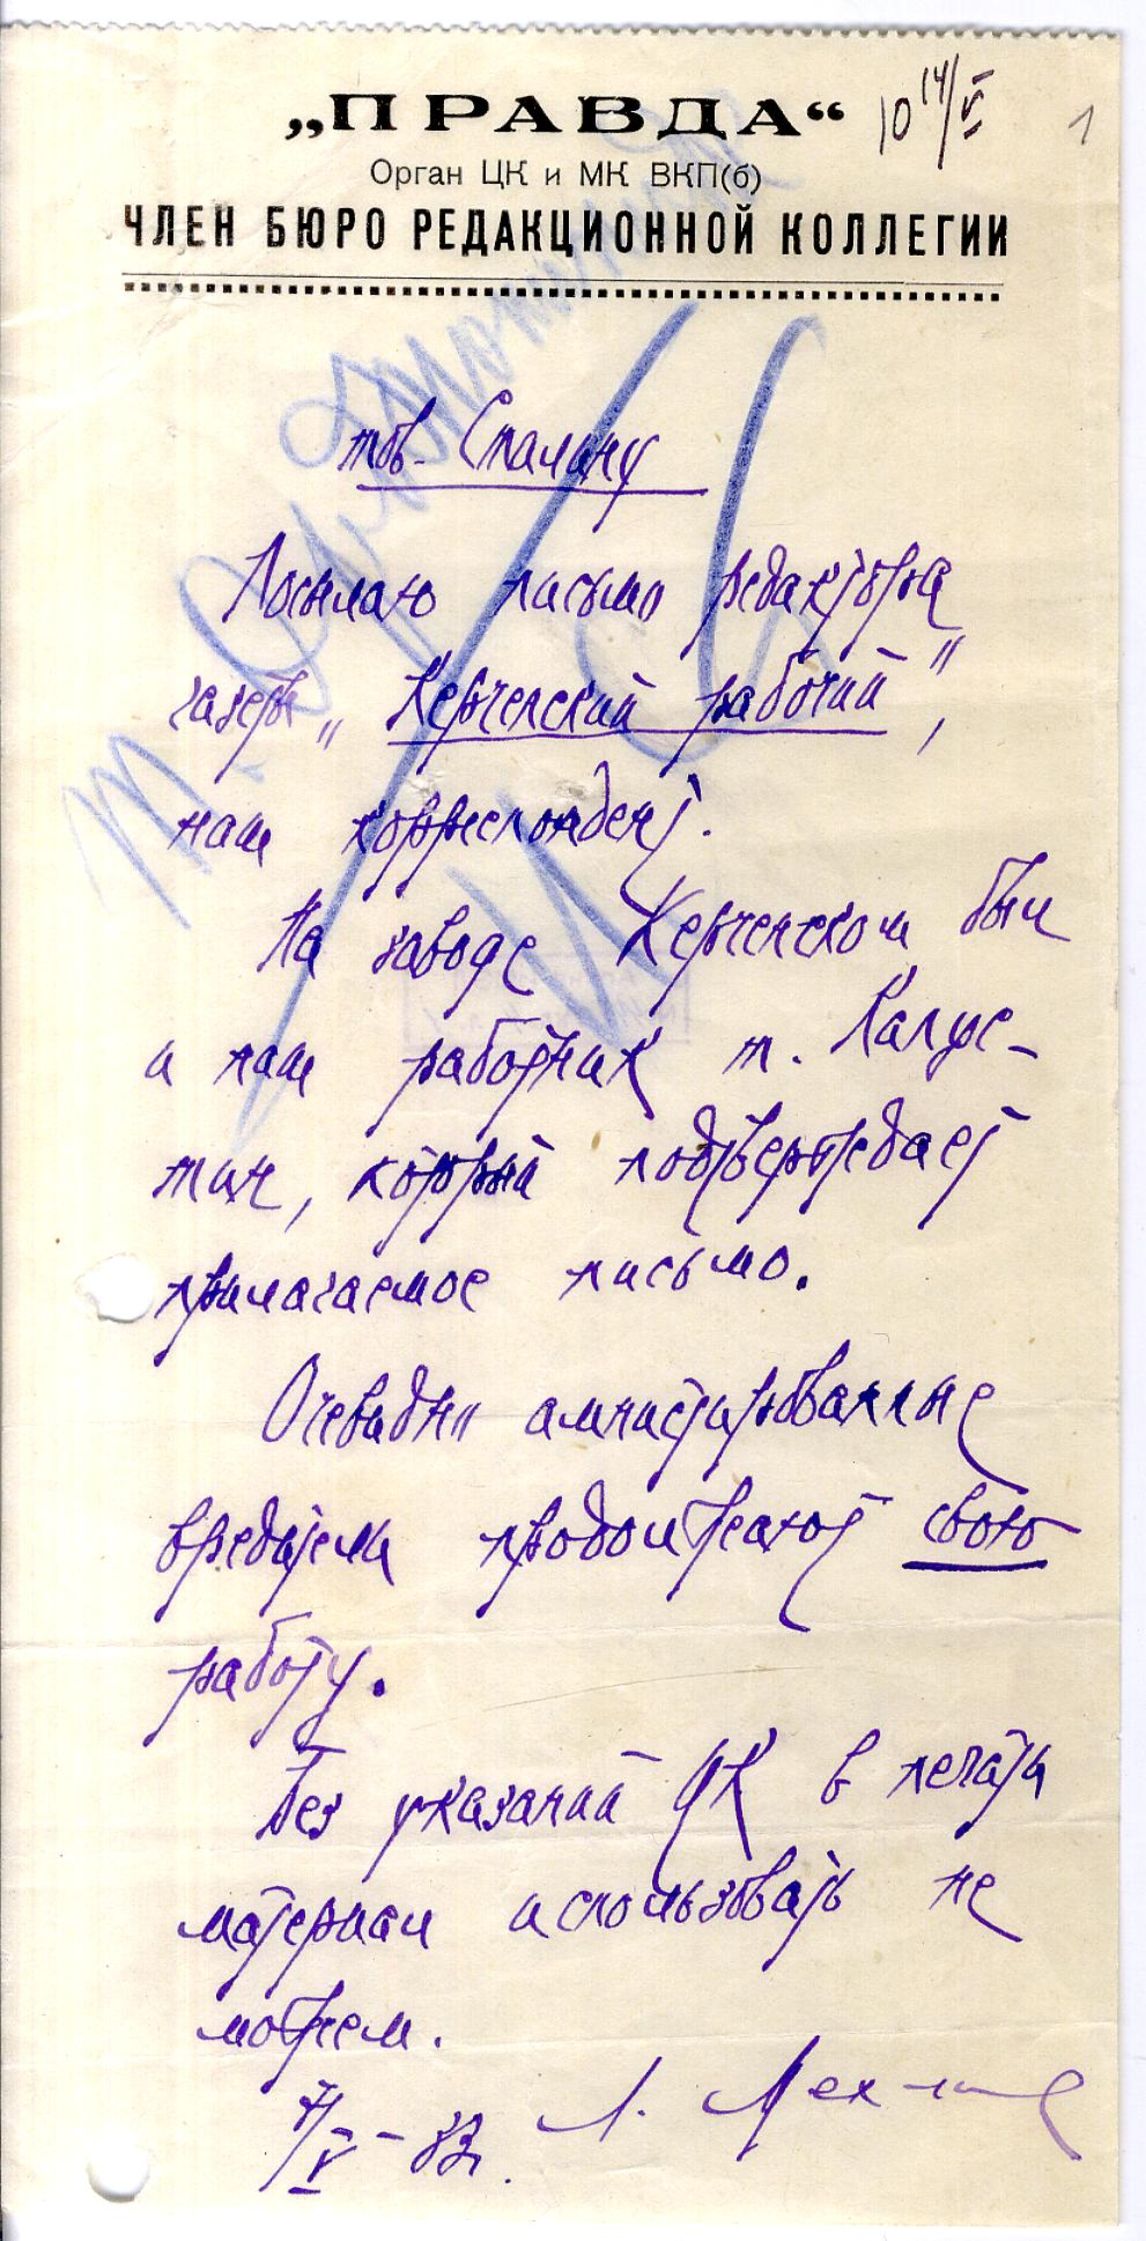 „ПРАВДА“
10 14/V
1
Орган ЦК и МК ВКП(б)
ЧЛЕН БЮРО РЕДАКЦИОННОЙ КОЛЛЕГИИ
тов. Сталину
Посылаю письмо редактора
газеты „Керченский рабочий“,
наш корреспондент.
На заводе Керченском был
и наш работник т. Капус-
тин, который подтверждает
прилагаемое письмо.
Очевидно амнистированные
вредители продолжают свою
работу.
Без указаний ЦК в печати
материал использовать не
можем.
Л. Мехлис
7/V-33г.